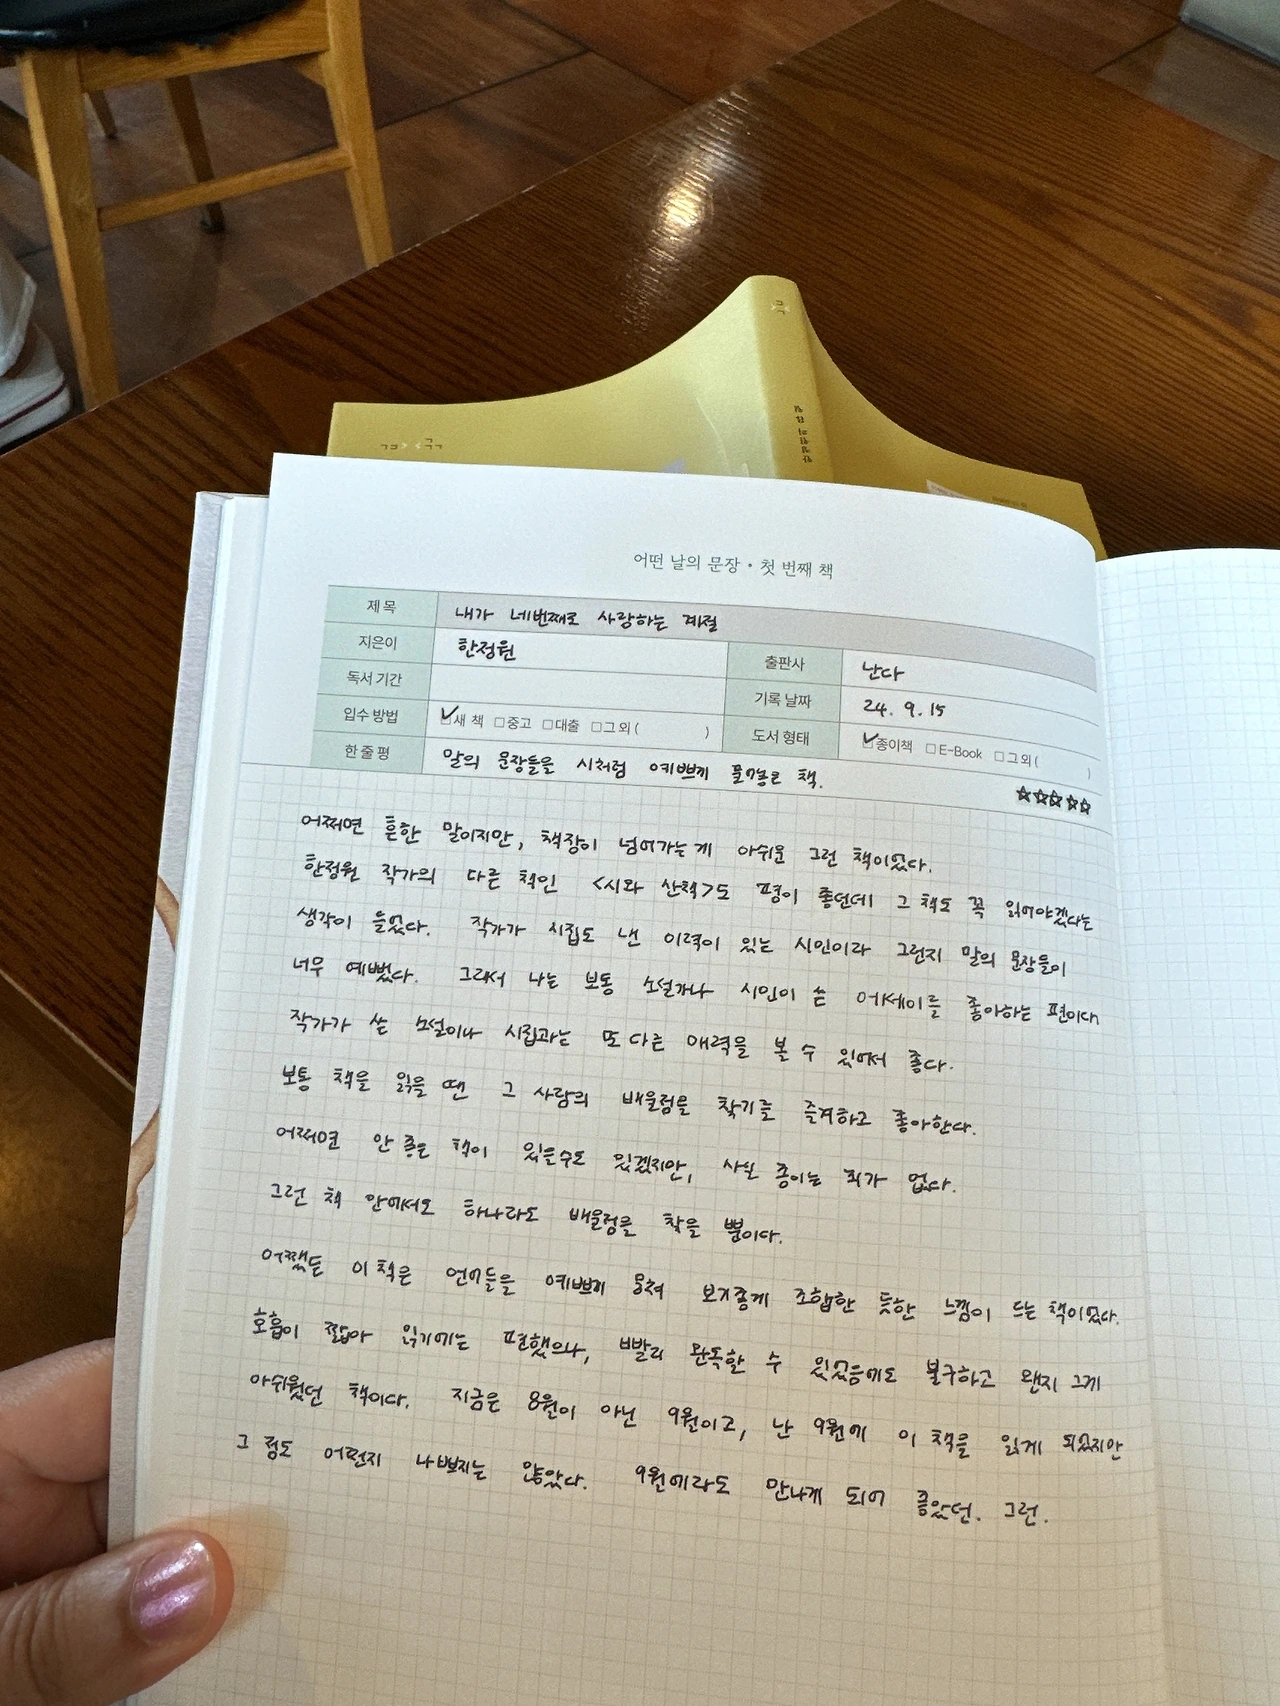 한정원의 8월
어떤 날의 문장 • 첫 번째 책
제목 내가 네번째로 사랑하는 계절
지은이 한정원 출판사 난다
독서 기간 기록 날짜 24. 9. 15
입수 방법 ☑새 책 □중고 □대출 □그 외 ( ) 도서 형태 ☑종이책 □E-Book □그 외 ( )
한 줄 평 말의 문장들을 시처럼 예쁘게 풀어놓은 책. ☆☆☆☆☆
어쩌면 흔한 말이지만, 책장이 넘어가는게 아쉬운 그런 책이었다.
한정원 작가의 다른 책인 <시와 산책>도 평이 좋던데 그 책도 꼭 읽어야겠다는
생각이 들었다. 작가가 시집도 낸 이력이 있는 시인이라 그런지 말의 문장들이
너무 예뻤다. 그래서 나는 보통 소설가나 시인이 쓴 에세이를 좋아하는 편이다
작가가 쓴 소설이나 시집과는 또 다른 매력을 볼 수 있어서 좋다.
보통 책을 읽을 땐 그 사람의 배울점을 찾기를 즐겨하고 좋아한다.
어쩌면 안 좋은 책이 있을수도 있겠지만, 사실 종이는 죄가 없다.
그런 책 안에서도 하나라도 배울점을 찾을 뿐이다.
어쨌든 이 책은 언어들을 예쁘게 뭉쳐 보기좋게 조합한 듯한 느낌이 드는 책이었다.
호흡이 짧아 읽기에는 편했으나, 빨리 완독할 수 있었음에도 불구하고 왠지 그게
아쉬웠던 책이다. 지금은 8월이 아닌 9월이고, 난 9월에 이 책을 읽게 되었지만
그 점도 어쩐지 나쁘지는 않았다. 9월에라도 만나게 되어 좋았던. 그런.